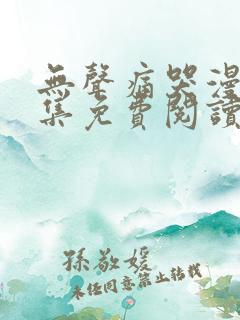 無聲痛哭漫
集免費閱讀
孫敬媛
未经同意禁止转载